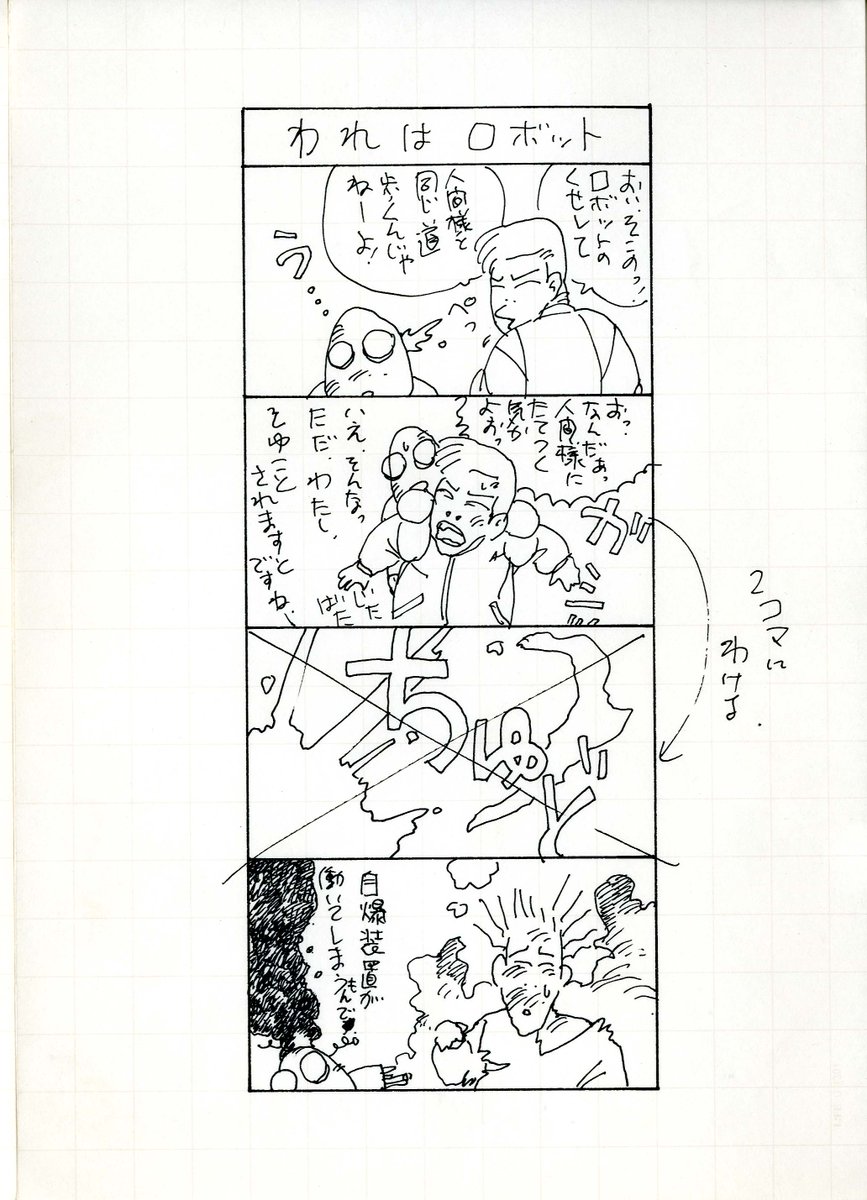 われは ロボット
おい、そこのっ！
ロボットの
くせして
人間様と
同じ道
歩くんじゃ
ねーよ！
ぺっ
う
おっ、
なんだぁっ
人間様に
たてつく
気か
よおっ
いえ、そんなっ
ただ、わたし、
そゆこと
されますと
ですね、
じた
ばた
ガ
ちゅど
2コマに
わける.
自爆装置が
働いてしまう
もんで